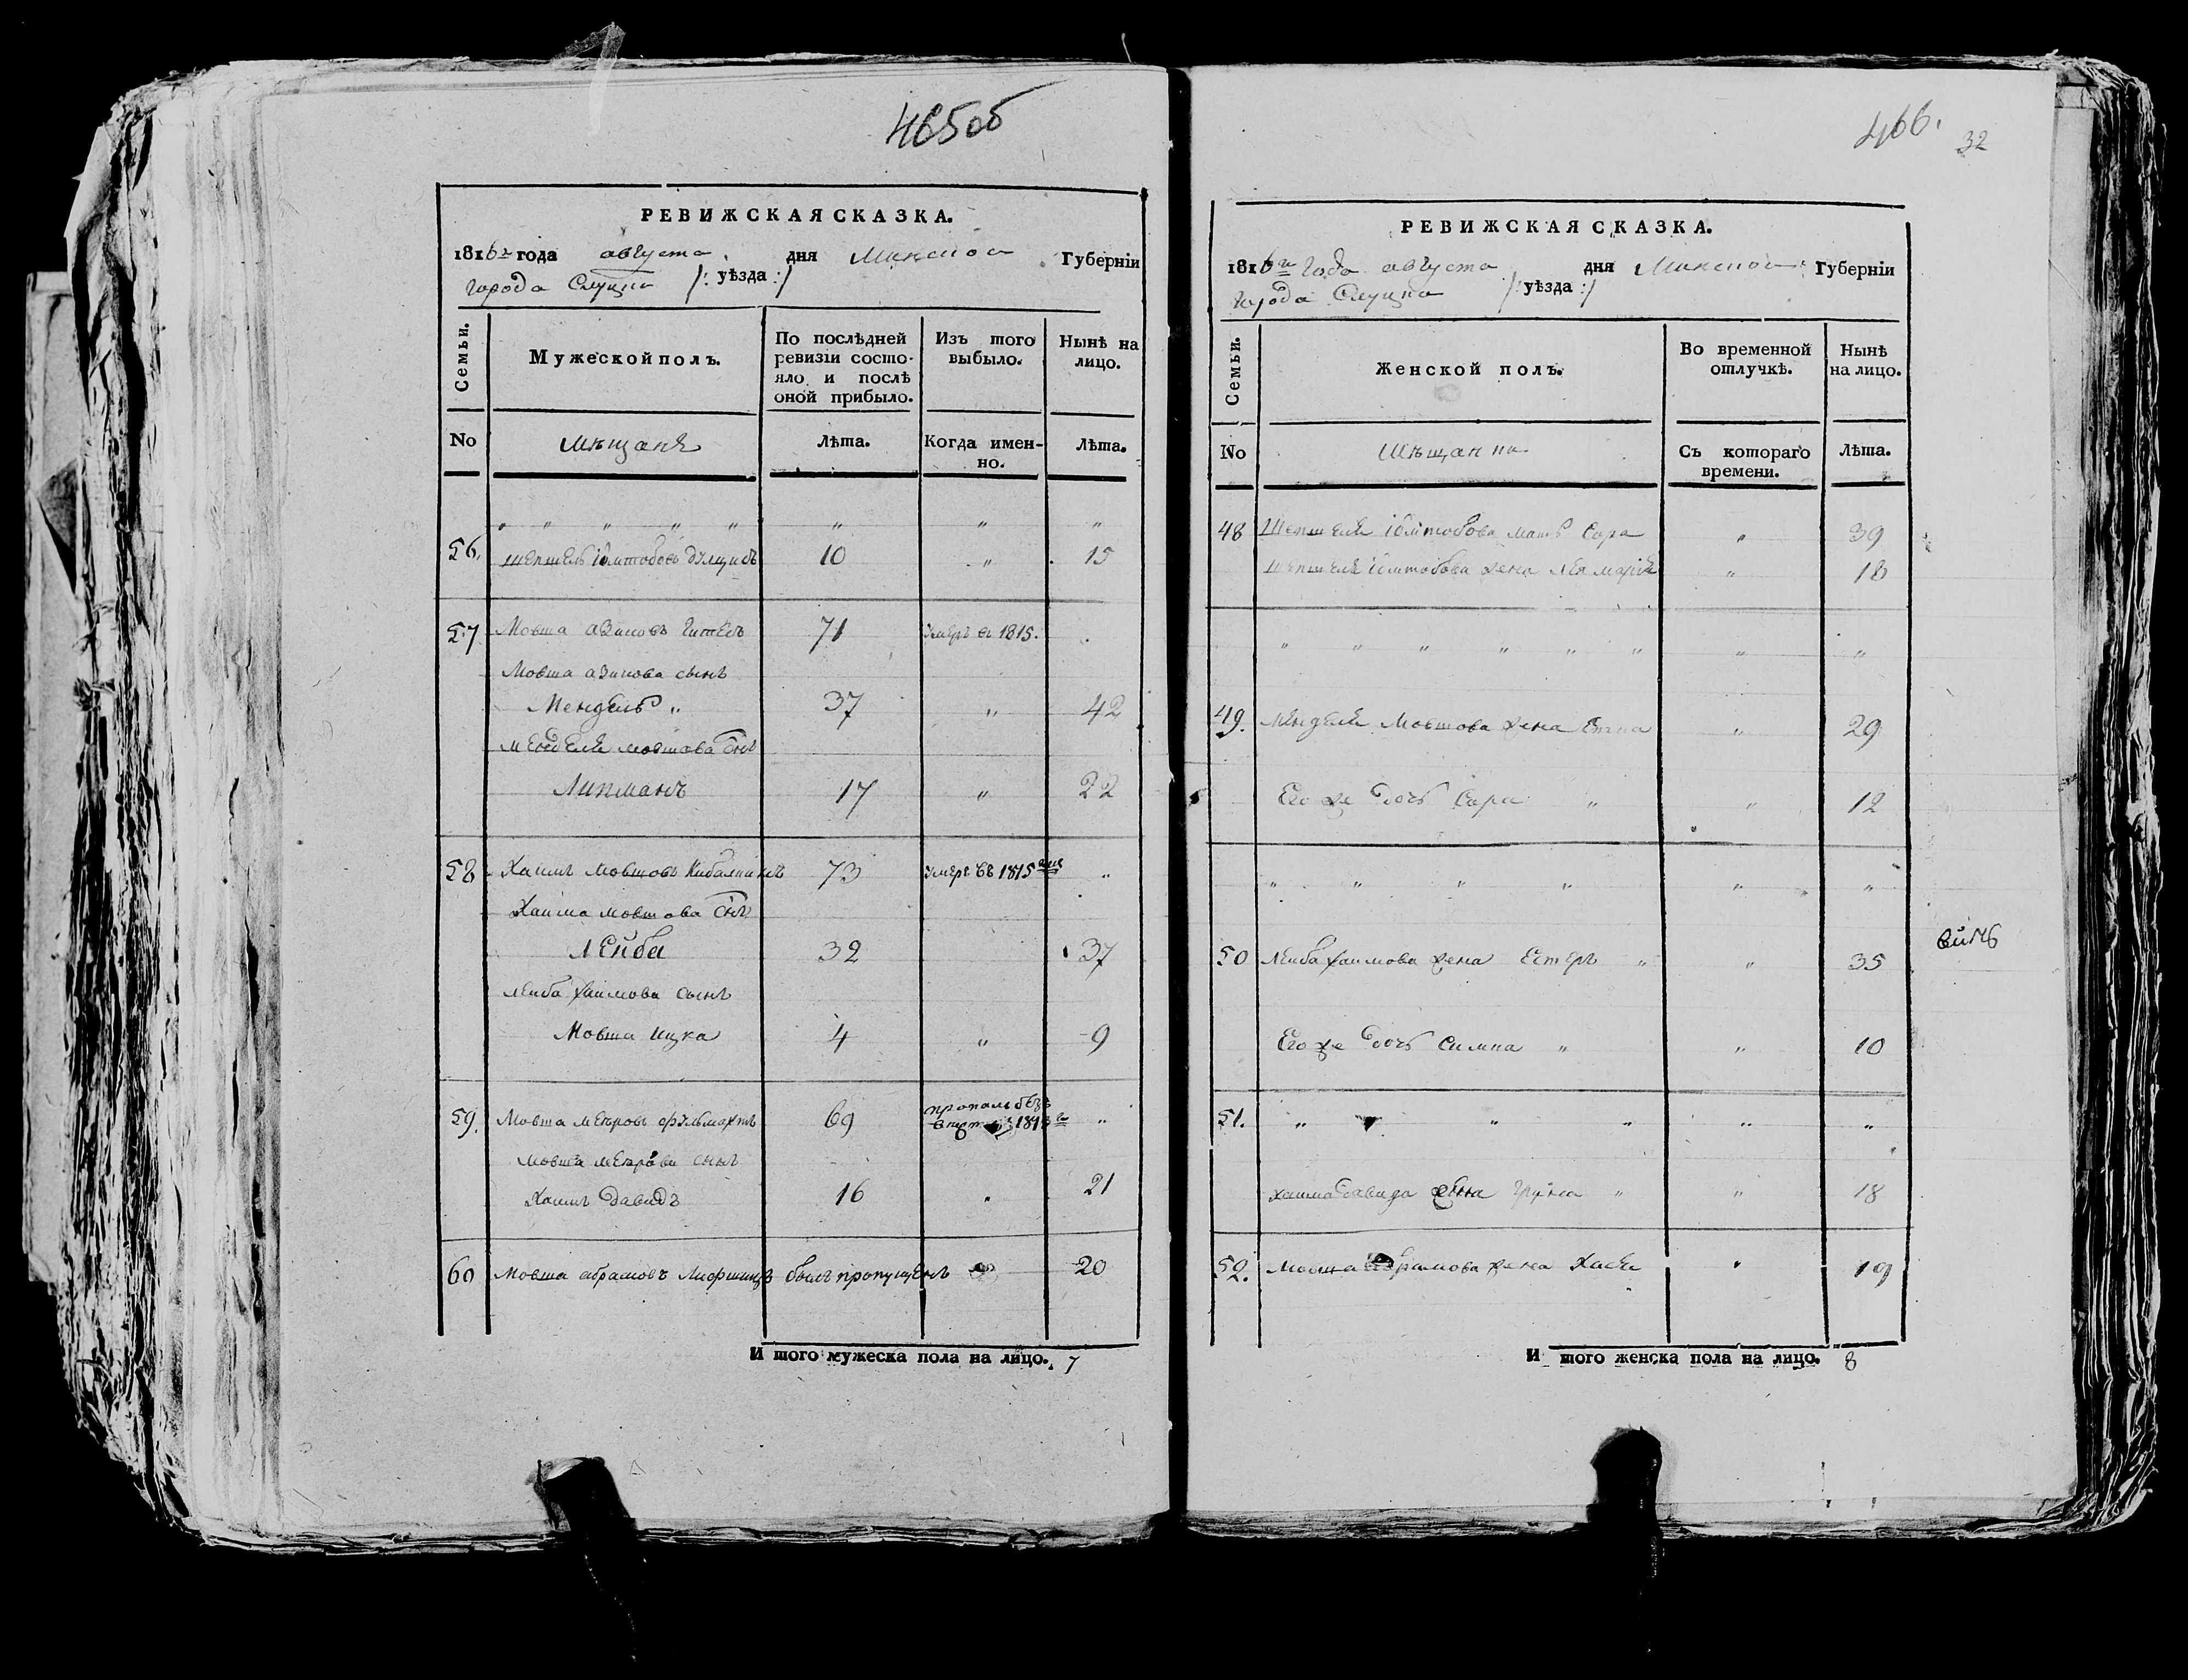 465об
РЕВИЖСКАЯ СКАЗКА.
1816го года августа дня Минской Губерніи
города Слуцка /: уѣзда :/
Семьи.
Мужеской полъ.
По послѣдней ревизіи состо-
яло и послѣ
оной прибыло.
Изъ того
выбыло.
Нынѣ на
лицо.
No
мѣщане
Лѣта.
Когда имен-
но.
Лѣта.
" " " " " " " "
56. Шепшель Іомтобовъ 10 " 15
57 Мовша Гителъ 71 умеръ въ 1815.
Мовша сынъ
Мендель " 37 " 42
Менделя Мовшова сынъ
Липманъ 17 " 22
58 Хаимъ Мовшовъ 73 умеръ въ 1815 "
Хаима Мовшова сынъ
Лейба 32 37
Лейба Хаимова сынъ
Мовша Ицка 4 " 9
59. Мовша Меѣровъ 69 пропалъ безъ
"
Мовша Меѣрова сынъ
Хаимъ Давидъ 16 21
60 Мовша Абрамовъ Лифшицъ былъ пропущенъ 20
И того мужеска пола на лицо. 7
466.
32
РЕВИЖСКАЯ СКАЗКА.
1816го года августа дня Минской Губерніи
города Слуцка /: уѣзда :/
Семьи.
Женской полъ.
Во временной
отлучкѣ.
Нынѣ
на лицо.
No
Мѣщанки
Съ котораго
времени.
Лѣта.
48 Шепшеля Іомтобова мать Сара " 39
Шепшеля Іомтобова жена " 18
" " " " " " " "
49. Менделя Мовшова жена " 29
Его же дочь Сара " " 12
" " " " " "
50 Лейба Хаимова жена Естеръ " " 35
Его же дочь Симка " " 10
51. " " " " "
Хаима Давида жена Груня " " 18
52. Мовша Абрамова жена Хася " 19
И того женска пола на лицо. 8